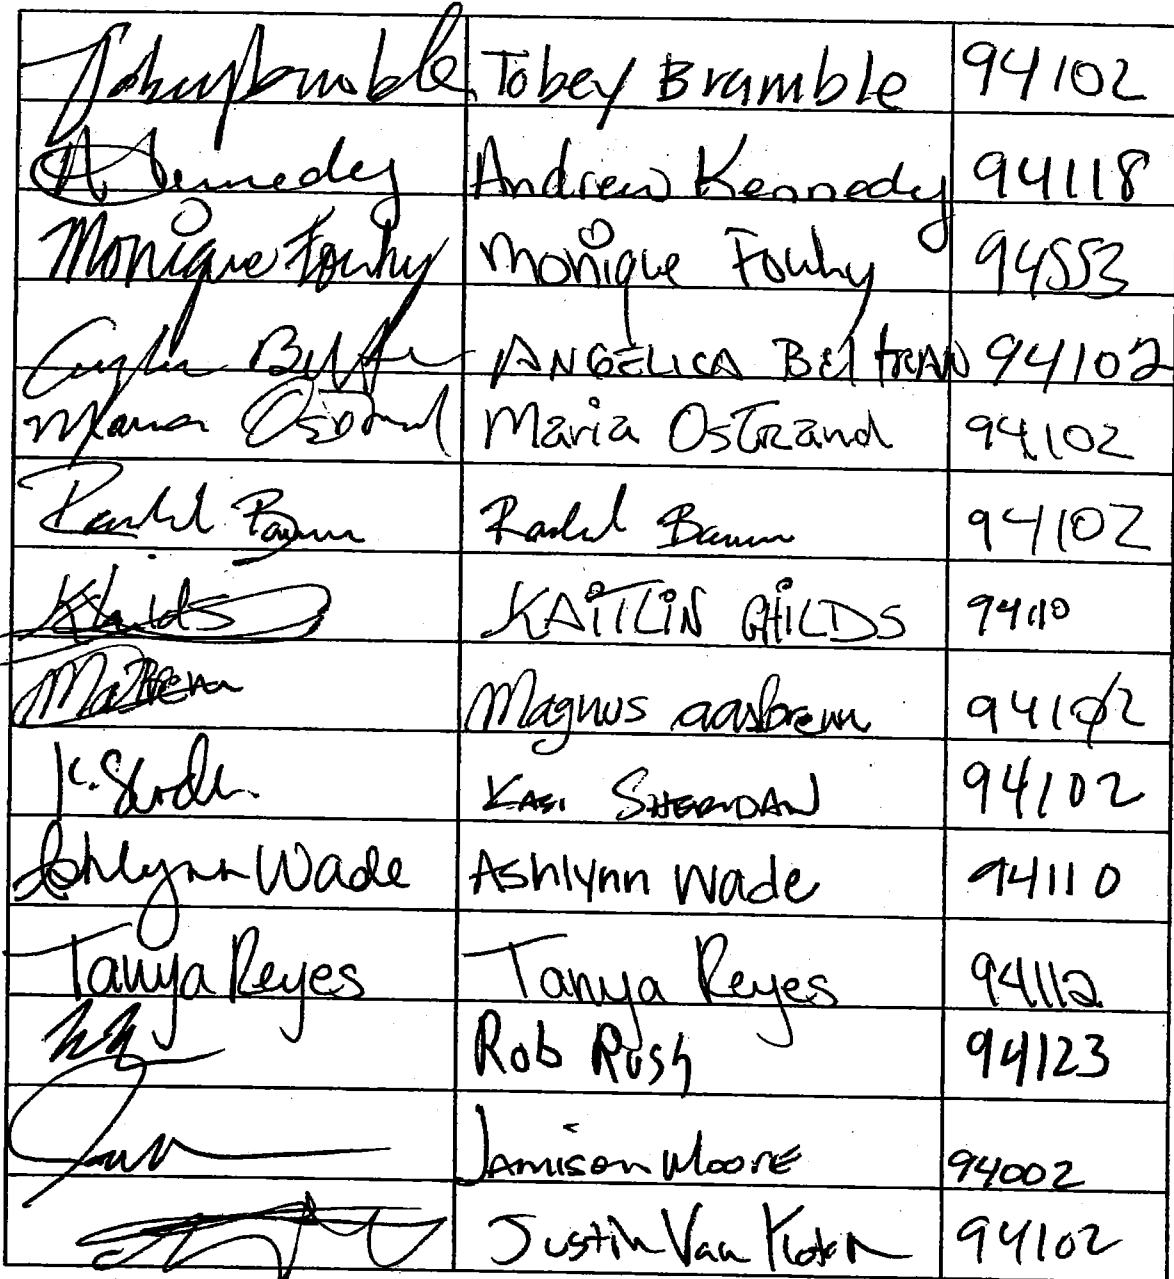 Tobey Bramble Tobey Bramble 94102
A Kennedy Andrew Kennedy 94118
Monique Fouhy Monique Fouhy 94553
ANGELICA BELTRAN 94102
Maria Ostrand Maria Ostrand 94102
94102
KChilds KAITLIN CHILDS 94110
Magnus aasbrenn 94102
K. SHERIDAN 94102
Ashlynn Wade Ashlynn Wade 94110
Tanya Reyes Tanya Reyes 94112
Rob Rush 94123
Jamison Moore 94002
Justin Van 94102